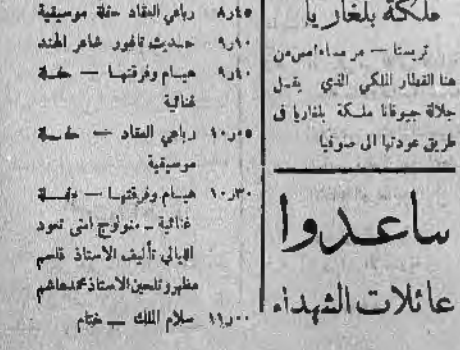 ملكة بلغاريا
تريستا — مر مساء امس من
هنا القطار الملكي الذي يقل
جلالة جيوفانا ملكة بلغاريا في
طريق عودتها الى صوفيا
ساعدوا
عائلات الشهداء
٨ر٤٥ رباعي العقاد حفلة موسيقية
٩ر١٠ حديث تاغور شاعر الهند
٩ر٤٠ هيام وفرقتها — حفلة
غنائية
١٠ر٠٥ رباعي العقاد — حفلة
موسيقية
١٠ر٣٠ هيام وفرقتها — حفلة
غنائية — منولوج امتى تعود
الليالي تأليف الاستاذ قاسم
مظهر وتلحين الاستاذ محمد هاشم
١١ر٠٠ سلام الملك — ختام